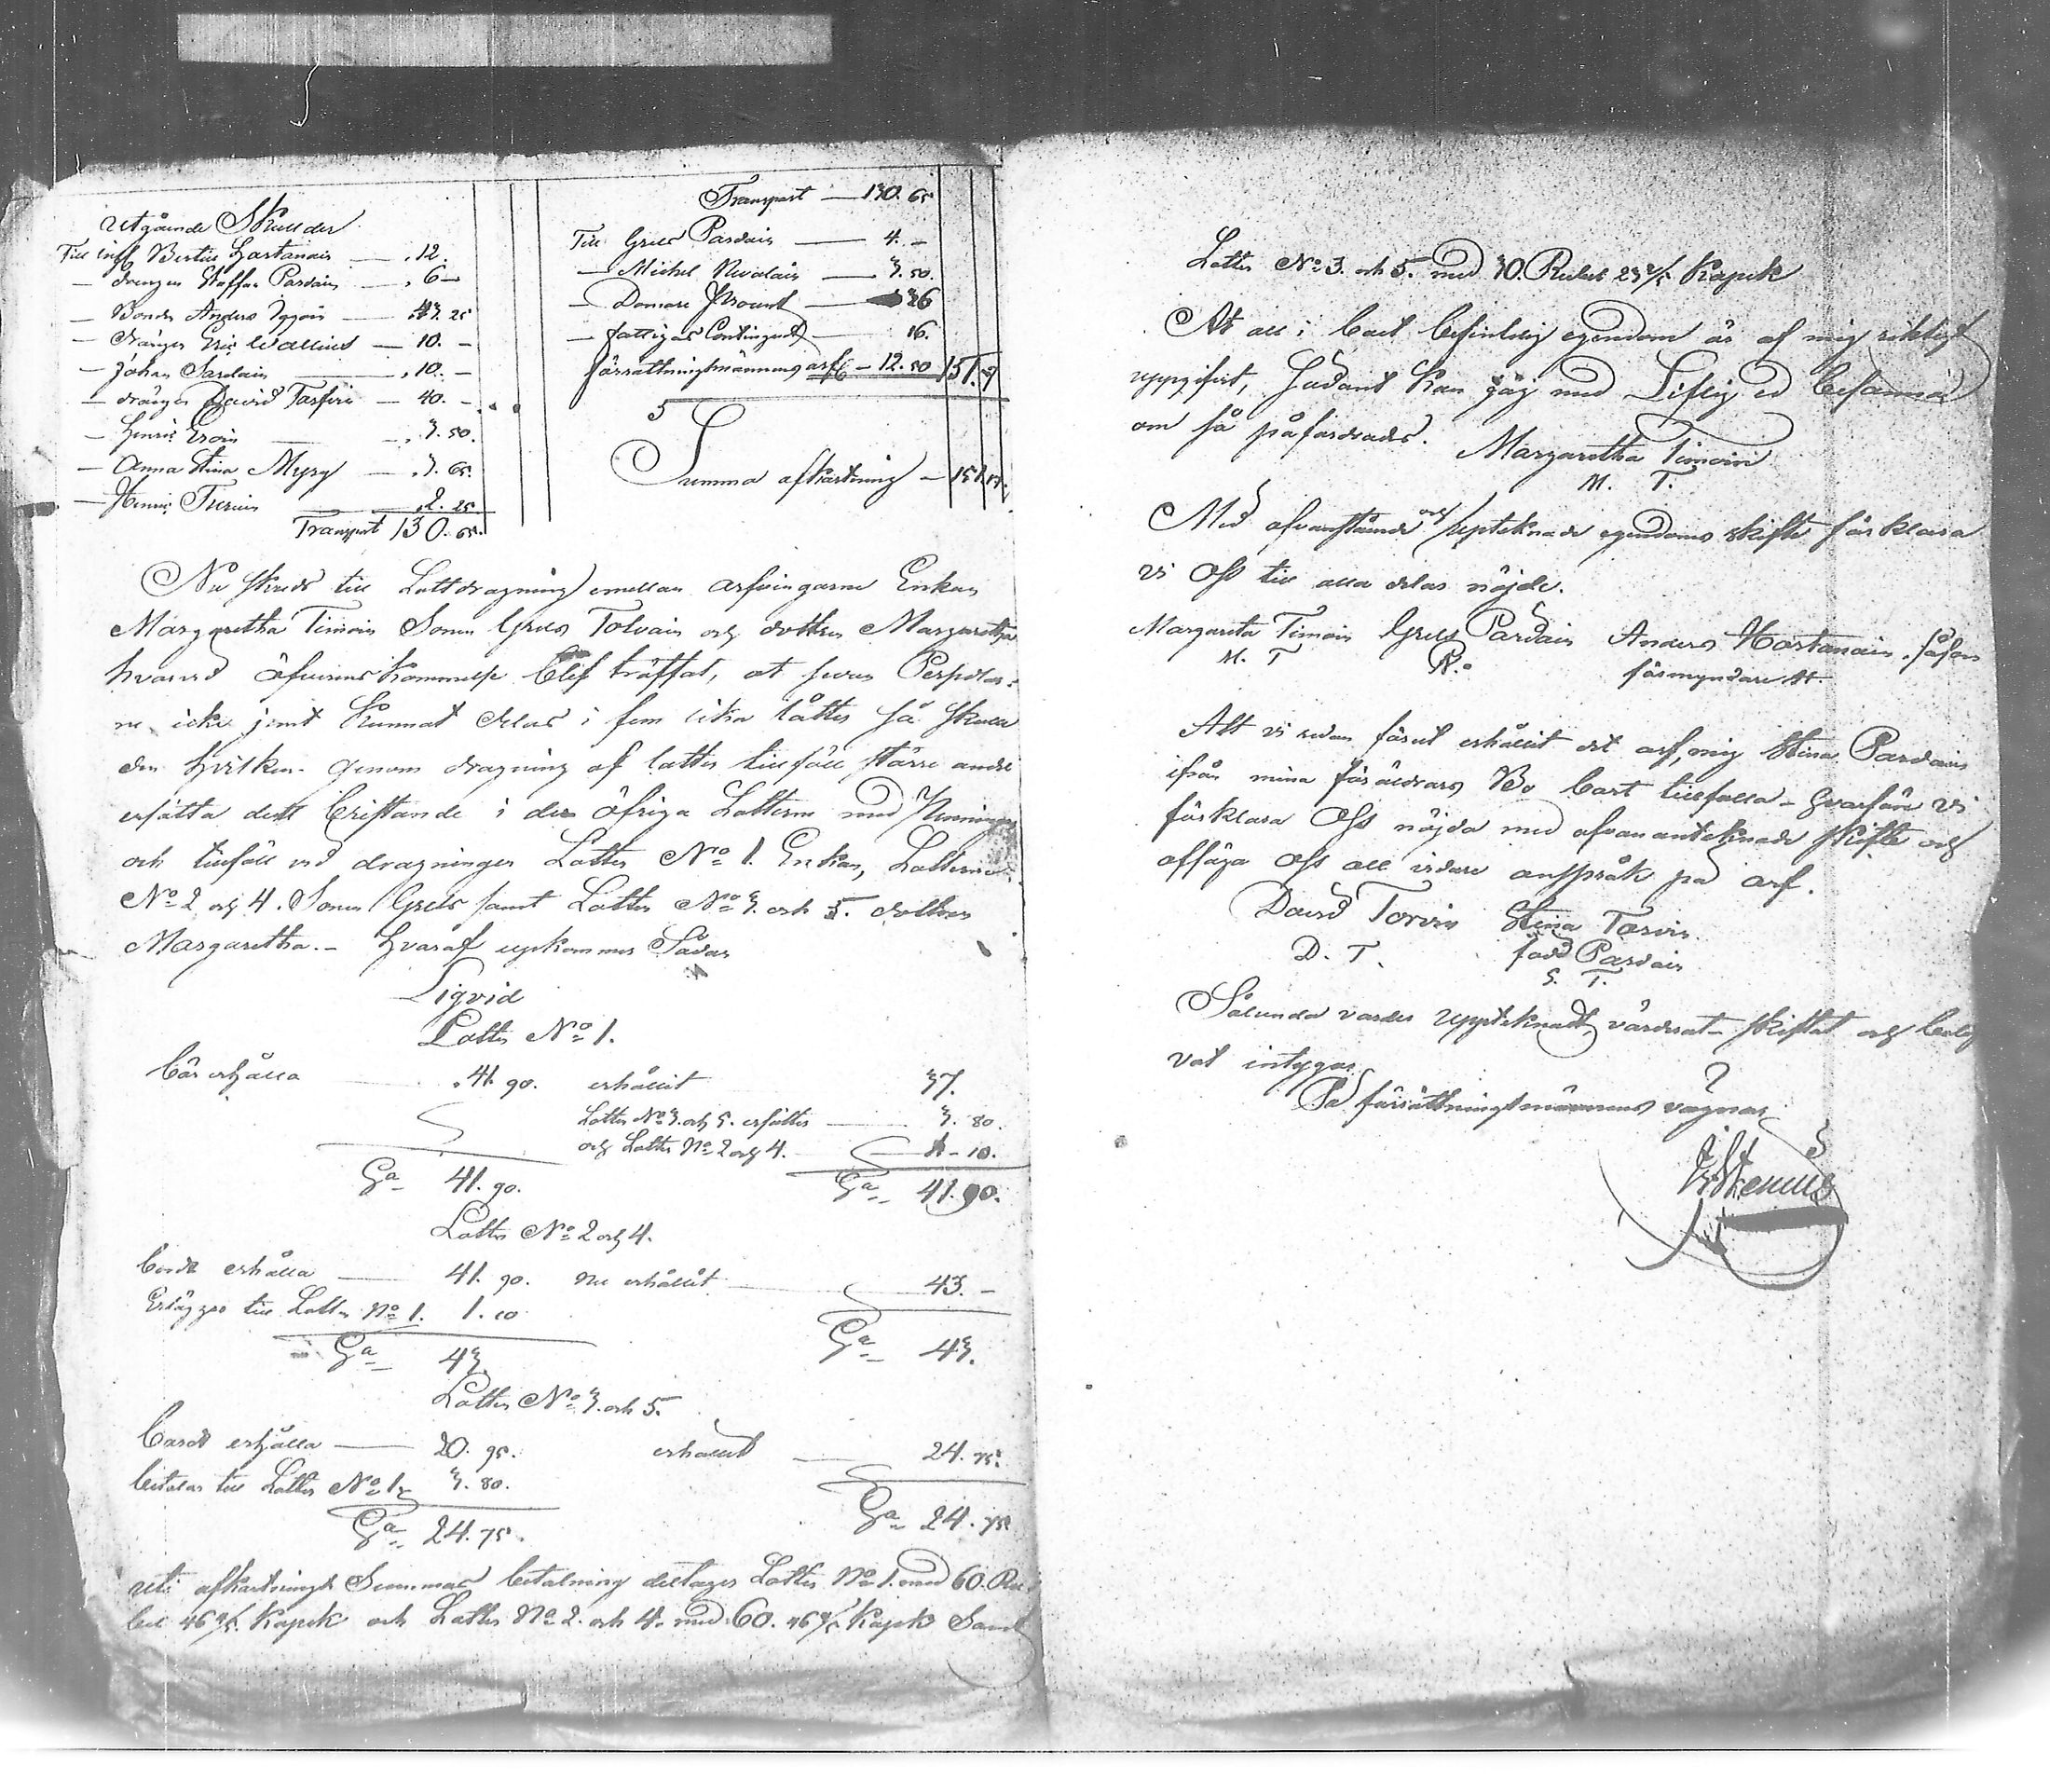 Utgående Skulder
Till inh Bertil Hartanain — 12.
— drengen Staffan Pardain — 6 —
— Bonden Anders — 43. 25
— dränger Eric Wallius — 10. —
— Johan Pardain — 10. —
— drängen David Tarfvin — 40. —
— Henric — 3. 50.
— Anna Stina Myry — 3. 65.
— Henric — 2. 25.
Transport 130. 65.
Transport — 130. 65
Till Grels Pardain — 4. —
— Michel — 3. 50.
— Domare — 36
— fattigas Contingent — 16.
förrättningsmännens arf — 12. 50
Summa afkortning — 151.
Nu skreds till Lottdragning emellan arfvingarne Enkan
Margaretha Timoin Sonen Grels Tolvain och dottren Margaretha
hvarvid öfverenskommelse blef träffat, at
icke jemt kunnat delas i fem lika lotter så skulle
den hvilken genom dragning af lotter tillföll större andel
ersätta dett bristande i de öfriga Lotterne med
och tillföll vid dragningen Lotten No 1. Enkan, Lotterne
No 2 och 4. Sonen Grels samt Lotten No 3. och 5. dottren
Margaretha. — Hvaraf uppkommer Sådan
Liqvid
Lotten No 1.
Bör erhålla 41. 90. erhållit 37.
Lotten No 3. och 5. ersätter — 3. 80.
och Lotten No 2 och 4. — 1 — 10.
Sa 41. 90. Sa 41. 90.
Lotten No 2 och 4.
borde erhålla — 41. 90. Nu erhållit 43. —
Erlägger till Lotten No 1. 1. 10
Sa 43. Sa 43.
Lotten No 3. och 5.
borde erhålla — 20. 95. erhållit 24. 75.
betalar till Lotten No 1. 3. 80.
Sa 24. 75. Sa 24. 75
Uti afkortnings Summans betalning deltager Lotten No 1. med 60. Ru
bel 46 4/5. Kopek och Lotten No 2. och 4. med 60. 46 4/5 Kopek Samt
Lotten No 3. och 5. med 30. Rubel 23 2/5 Kopek
At all i boet befintelig egendom är af mig riktigt
uppgifvit, sådant kan jag med Liflig ed besanna
om så påfordrades. Margaretha Timoin
M. T.
Med ofvanstående och upteknade egendoms skifte förklara
vi Oss till alla delar nöjde.
Margareta Timoin Grels Pardain Anders Hartanain. såsom
M. T förmyndare
Att vi redan förut erhållit det arf, mig Stina Pardain
ifrån mina föräldrars Bo bort tillfalla — hvarföre vi
förklara Oss nöjda med ofvanantecknade skifte och
afsäga Oss all vidare anspråk på arf.
David Torvin Stina Torvin
D. T. född Pardain
S. T.
Sålunda varder Upptecknadt, värderat — skiftat och
vat intygar
På förrättningsmännens vägnar